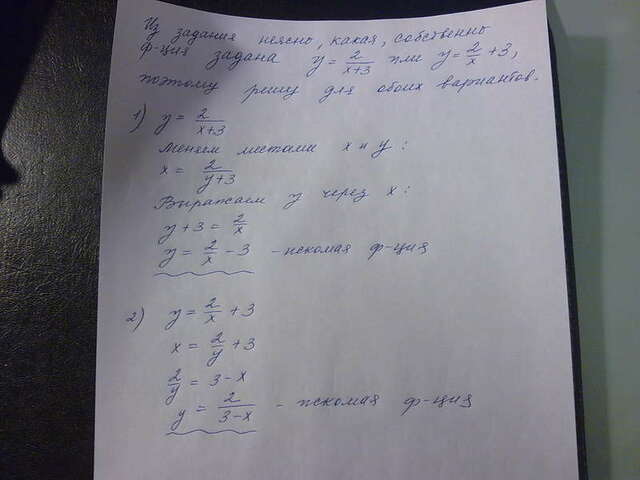 Из задания неясно, какая, собственно
ф-ция задана y = 2/(x+3) или y = 2/x + 3,
поэтому решу для обоих вариантов.
1) y = 2/(x+3)
Меняем местами x и y:
x = 2/(y+3)
Выражаем y через x:
y + 3 = 2/x
y = 2/x - 3 - искомая ф-ция
2) y = 2/x + 3
x = 2/y + 3
2/y = 3 - x
y = 2/(3-x) - искомая ф-ция